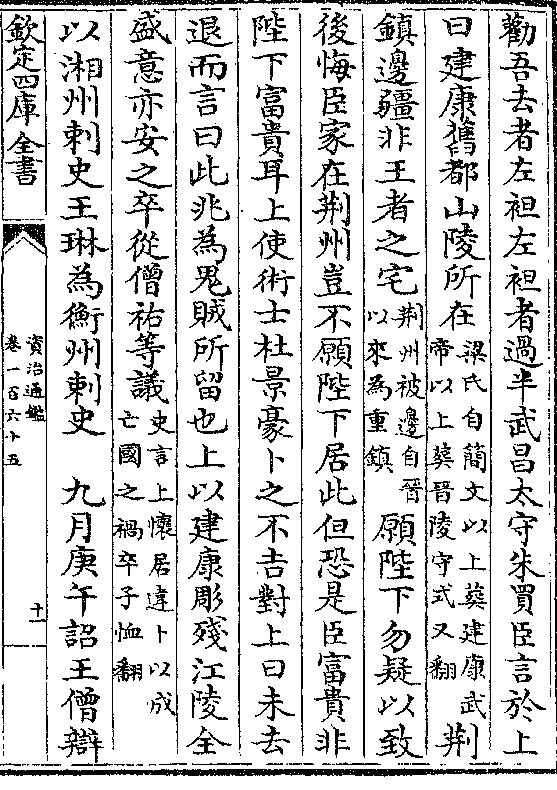 勸吾去者左袒左袒者過半武昌太守朱買臣言於上
曰建康舊都山陵所在梁氏自簡文以上葬建康武帝以上葬晉陵守式又翻荆
鎮邊疆非王者之宅荆州被邊自晉以來為重鎮願陛下勿疑以致
後悔臣家在荆州豈不願陛下居此但恐是臣富貴非
陛下富貴耳上使術士杜景豪卜之不吉對上曰未去
退而言曰此兆為鬼賊所留也上以建康彫殘江陵全
盛意亦安之卒從僧祐等議史言上懷居違卜以成亡國之禍卒子恤翻
以湘州刺史王琳為衡州刺史　九月庚午詔王僧辯
欽定四庫全書
資治通鑑
卷一百六十五
十一